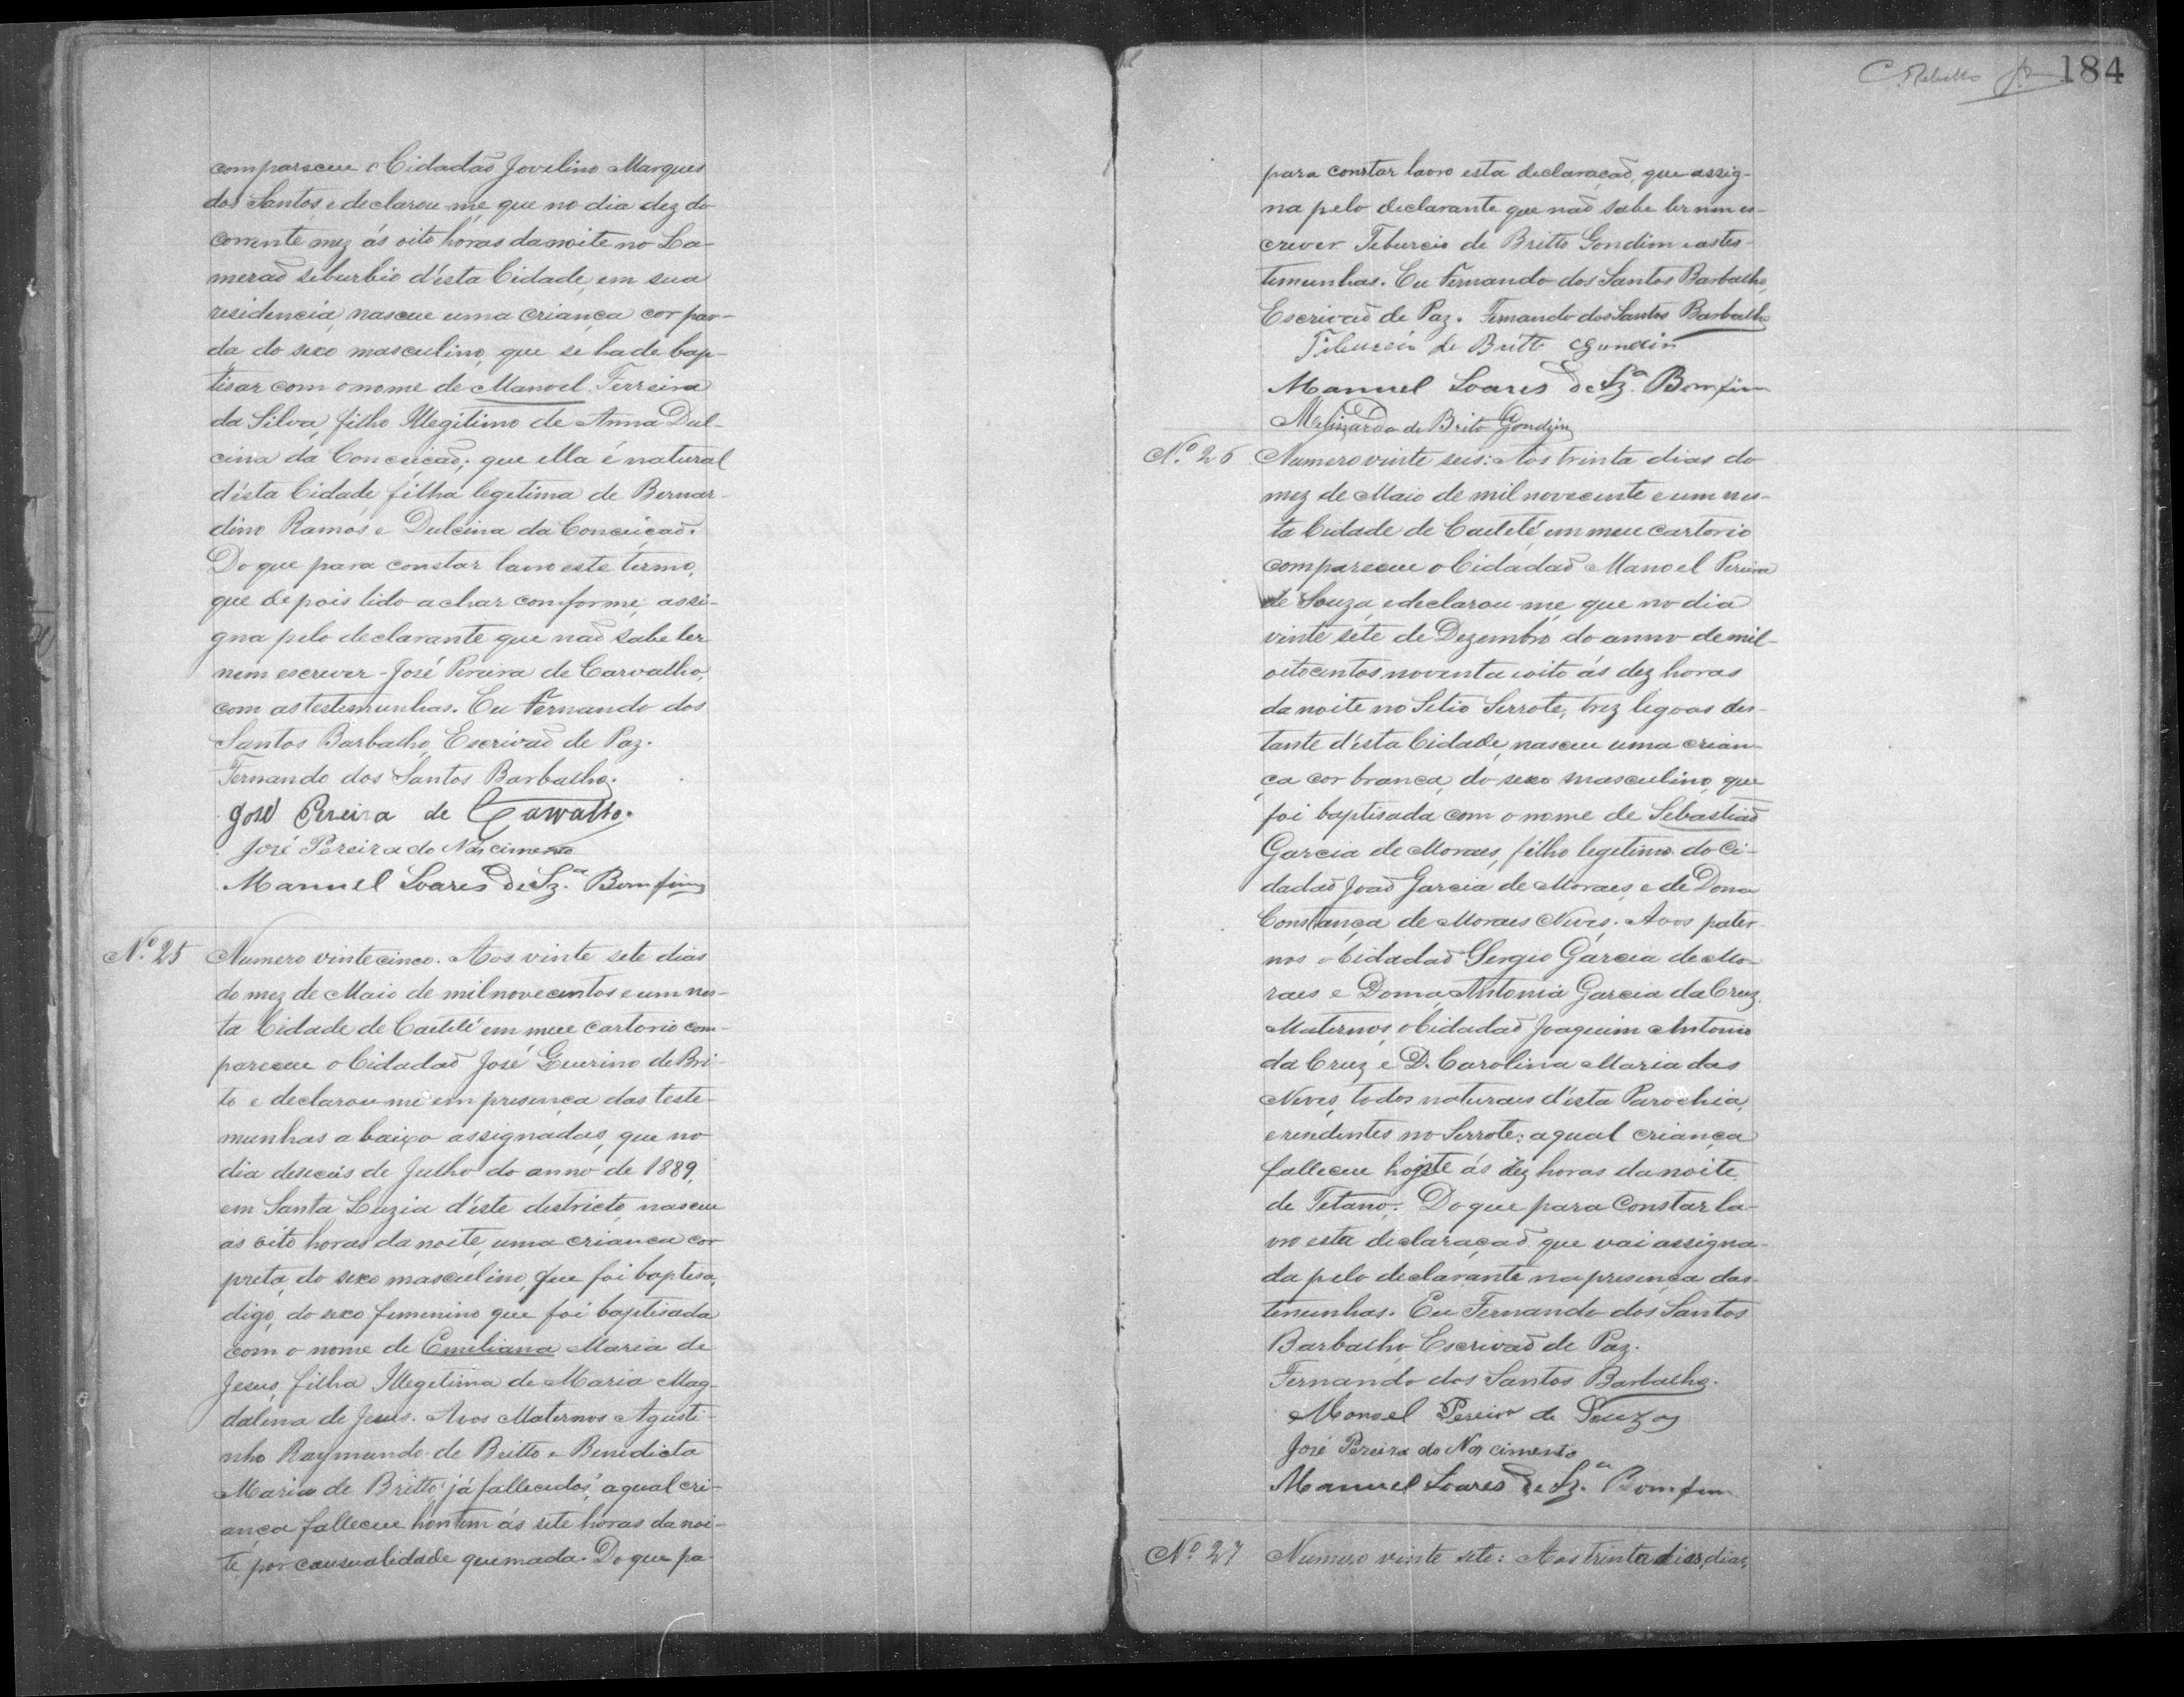 compareceu o Cidadaõ Jovelino Marques
dos Santos, e declarou-me, que no dia dez do
corrente mez ás oito horas da noite no La-
meraõ siburbio d'ésta Cidade, em sua
residencia, nasceu uma criança cor par-
da do sexo masculino, que se hade bap-
tisar com o nome de Manoel Ferreira
da Silva, filho Illegitimo de Anna Dul-
cina da Conceicaõ; que ella é natural
d'ésta Cidade filha legetima de Bernar-
dino Ramos e Dulcina da Conceiçaõ.
Do que para constar lavro este termo,
que depois lido achar conforme, assi-
gna pelo declarante que naõ sabe ler
nem escrever - José Pereira de Carvalho,
com as testemunhas. Eu Fernando dos
Santos Barbalho, Escrivaõ de Paz.
Fernando dos Santos Barbalho.
José Pereira de Carvalho.
José Pereira do Nascimento
Manuel Soares de Sz.ª Bomfim
Nº 25 Numero vinte cinco. Aos vinte sete dias
do mez de Maio de mil novecentos e um nes-
ta Cidade de Caetité em meu cartorio com-
pareceu o Cidadaõ José Guirino de Bri-
to e declarou-me em presença das teste-
munhas abaixo assignadas, que no
dia deseceis de Julho do anno de 1889,
em Santa Luzia d'éste destricto, nasceu
as oito horas da noite, uma crianca cor
preta, do sexo masculino, que foi baptisa,
digo, do sexo femenino que foi baptisada
com o nome de Emiliana Maria de
Jesus, filha Illegetima de Maria Mag-
dalena de Jesus. Avos Maternos Agusti-
nho Raymundo de Britto e Benedicta
Maria de Britto já fallecidos, a qual cri-
ança falleceu hontem ás sete horas da noi-
te, por causualidade queimada. Do que pa-
184
para constar lavro esta declaraçaõ, que assig-
na pelo declarante que naõ sabe ler nem es-
crever Teburcio de Britto Gondim e as tes-
temunhas. Eu Fernando dos Santos Barbalho,
Escrivaõ de Paz. Fernando dos Santos Barbalho
Tiburcio de Britto Gondin
Manuel Soares de Sz.ª Bomfim
de Brito Gondim
Nº 26 Numero vinte seis: Aos trinta dias do
mez de Maio de mil novecente e um nes-
ta Cidade de Caetité, em meu cartorio
compareceu o Cidadaõ Manoel Pereira
de Souza, e declarou-me, que no dia
vinte sete de Dezembro do anno de mil-
oitocentos noventa e oito ás dez horas
da noite no Sitio Serrote, trez legoas des-
tante d'ésta Cidade, nasceu uma crian-
ça cor branca, do sexo masculino, que
foi baptisada com o nome de Sebastiaõ
Garcia de Moraes, filho legetimo do Ci-
dadaõ Joaõ Garcia de Moraes, e de Dona
Constança de Moraes Neves. Avos pater-
nos o Cidadaõ Sergio Garcia de Mo-
raes e Dona Antonia Garcia da Cruz.
Maternos, o Cidadaõ Joaquim Antonio
da Cruz e D. Carolina Maria das
Neves, todos naturaes d'ésta Parochia,
e residentes no Serrote: a qual criança
falleceu ás dez horas da noite,
de Tetano. Do que para Constar la-
vro esta declaraçaõ que vai assigna-
da pelo declarante na presença das
temunhas. Eu Fernando dos Santos
Barbalho, Escrivaõ de Paz.
Fernando dos Santos Barbalho.
Manoel Pereira de Souza
José Pereira do Nascimento
Manuel Soares de Sz.ª Bomfim
Nº 27 Numero vinte sete: Aos trinta dias, dias,